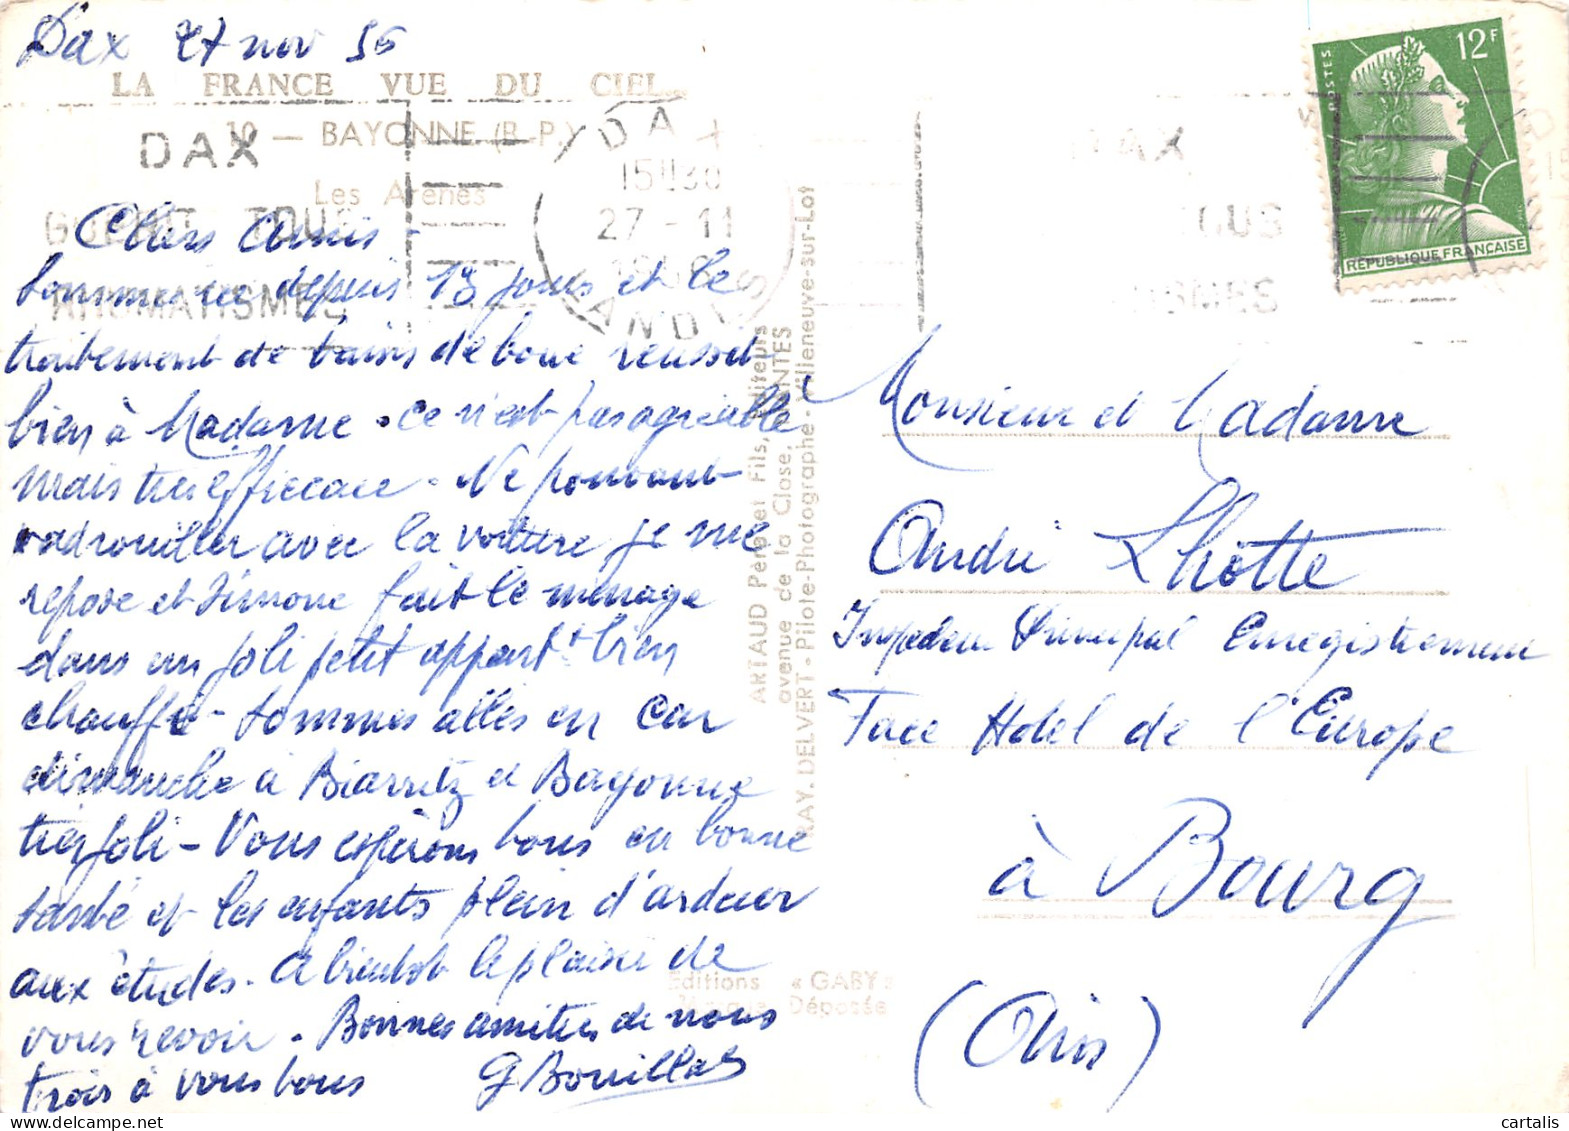 Dax 27 nov 56
LA FRANCE VUE DU CIEL...
10 — BAYONNE (B.-P.)
Les Arènes
DAX
GUÉRIT TOUS
RHUMATISMES
DAX
15H30
27 - 11
LANDES
Chers Amis -
Sommes ici depuis 13 jours et le
traitement de bains de boue reussit
bien à Madame. Ce n'est pas agréable
mais tres efficcace. Ne pouvant
vadrouiller avec la voiture je me
repose et Simone fait le ménage
dans un joli petit appart^t bien
chauffé - Sommes allés en car
dimanche à Biarritz et Bayonne
très joli - Vous espérons tous en bonne
santé et les enfants plein d'ardeur
aux études. A bientot le plaisir de
vous revoir. Bonnes amitiés de nous
trois à vous tous
G Bouillas
ARTAUD Père et Fils, Éditeurs
avenue de la Close, NANTES
RAY. DELVERT - Pilote-Photographe - Villeneuve-sur-Lot
Editions « GABY »
Marque Déposée
DAX
TOUS
RHUMATISMES
POSTES
12F
REPUBLIQUE FRANÇAISE
Monsieur et Madame
André Lhôtte
Inspecteur Principal Enregistrement
Face Hotel de l'Europe
à Bourg
(Ain)
carsalis
delcampe.net